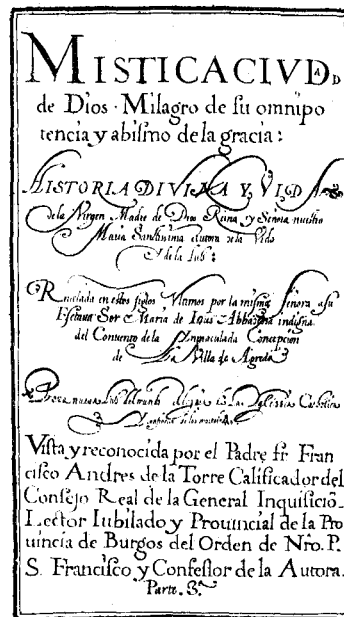 MISTICA CIVDAD
de Dios · Milagro de ſu omnipo
tencia y abiſmo de la gracia:
HISTORIA DIVINA Y VIDA
de la Virgen Madre de Dios Reina, y Señora nueſtra
Maria Santiſsima
y de la Luz:
en eſtos ſiglos por la miſma Señora a ſu
Eſclaua Sor Maria de Ieſus Abbadeſa indigna
del Conuento de la Inmaculada Concepcion
de la Villa de Agreda
nueua Luz del mundo Igleſia Catolica
Viſta y reconocida por el Padre fr. Fran
ciſco Andres de la Torre Calificador del
Conſejo Real de la General Inquiſiciō
Lector Iubilado y Prouincial de la Pro
uincia de Burgos del Orden de Nro. P.
S. Franciſco y Confeſſor de la Autora.
Parte. 3.ª